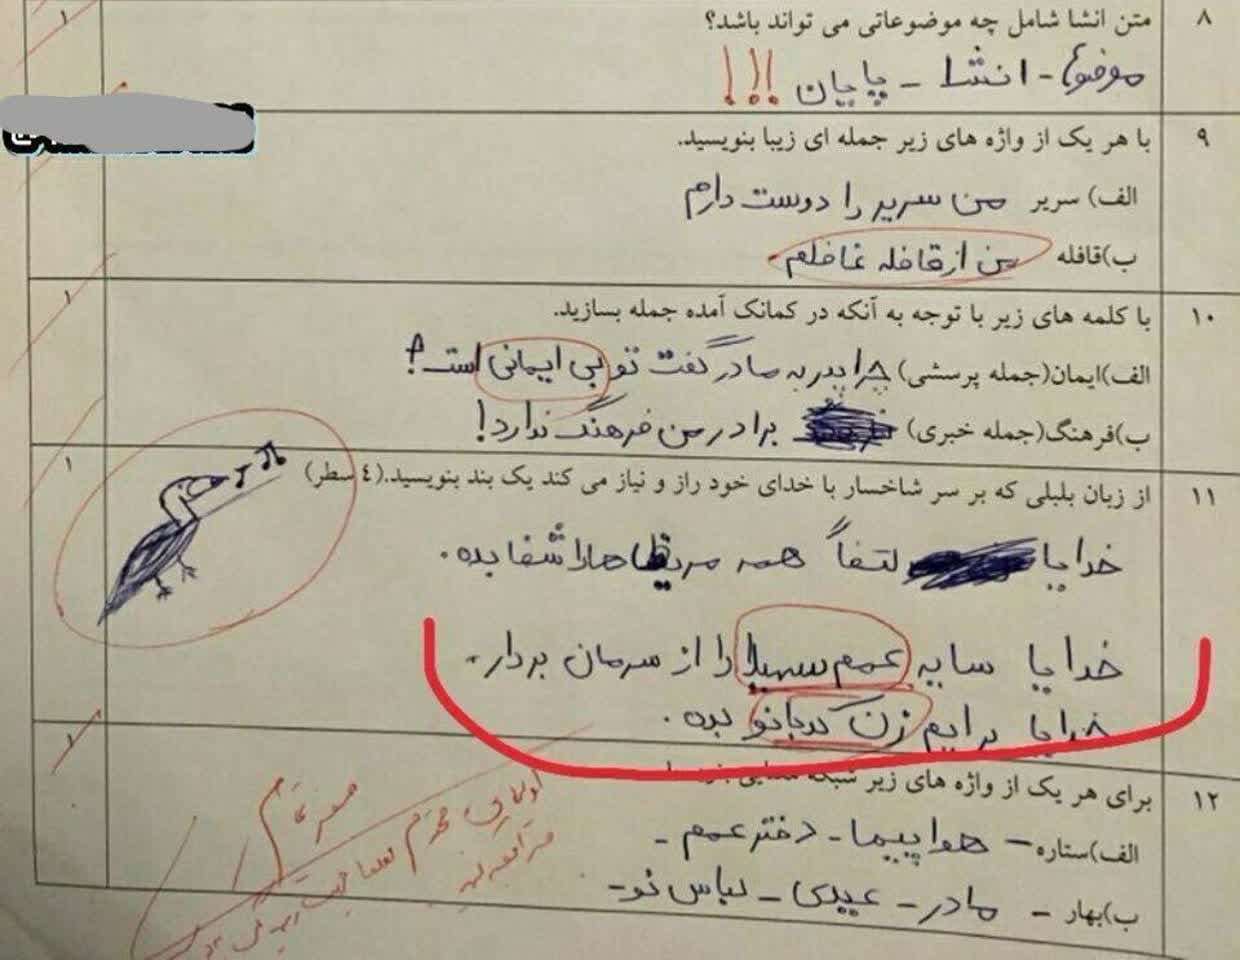 ۸ متن انشا شامل چه موضوعاتی می تواند باشد؟ ۱
موضوع - انشا - پایان !!!
۹ با هر یک از واژه های زیر جمله ای زیبا بنویسید.
الف) سریر من سریر را دوست دارم
ب)قافله من از قافله غافلم.
۱۰ با کلمه های زیر با توجه به آنکه در کمانک آمده جمله بسازید. ۱
الف)ایمان(جمله پرسشی) چرا پدر به مادر گفت تو بی ایمانی است؟
ب)فرهنگ(جمله خبری) برادر من فرهنگ ندارد!
۱۱ از زبان بلبلی که بر سر شاخسار با خدای خود راز و نیاز می کند یک بند بنویسید.(٤ سطر) ۱
خدایا لتفاً همه مریظ ها را شفا بده.
خدایا سایه عمم سهیلا را از سرمان بردار.
خدایا برایم زن کدبانو بده.
۱۲ برای هر یک از واژه های زیر شبکه معنایی ۱
الف)ستاره - هواپیما - دختر عمم -
ب)بهار - مادر - عیدی - لباس نو -
صفر تمام
اولیای محترم لطفا جهت